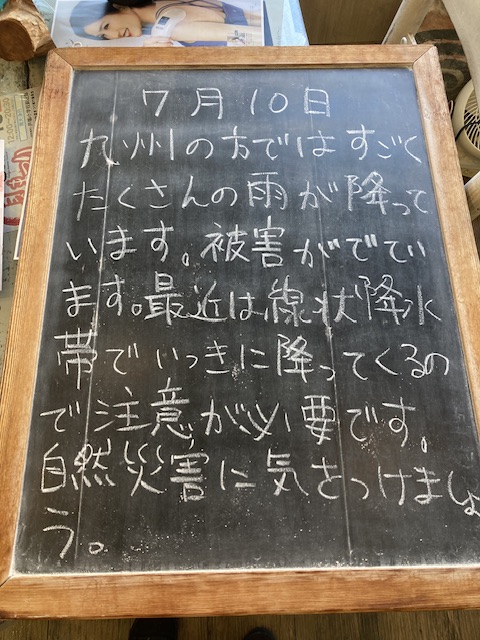 7月10日
九州の方ではすごく
たくさんの雨が降って
います。被害がでてい
ます。最近は線状降水
帯でいっきに降ってくるの
で注意が必要です。
自然災害に気をつけましょ
う。